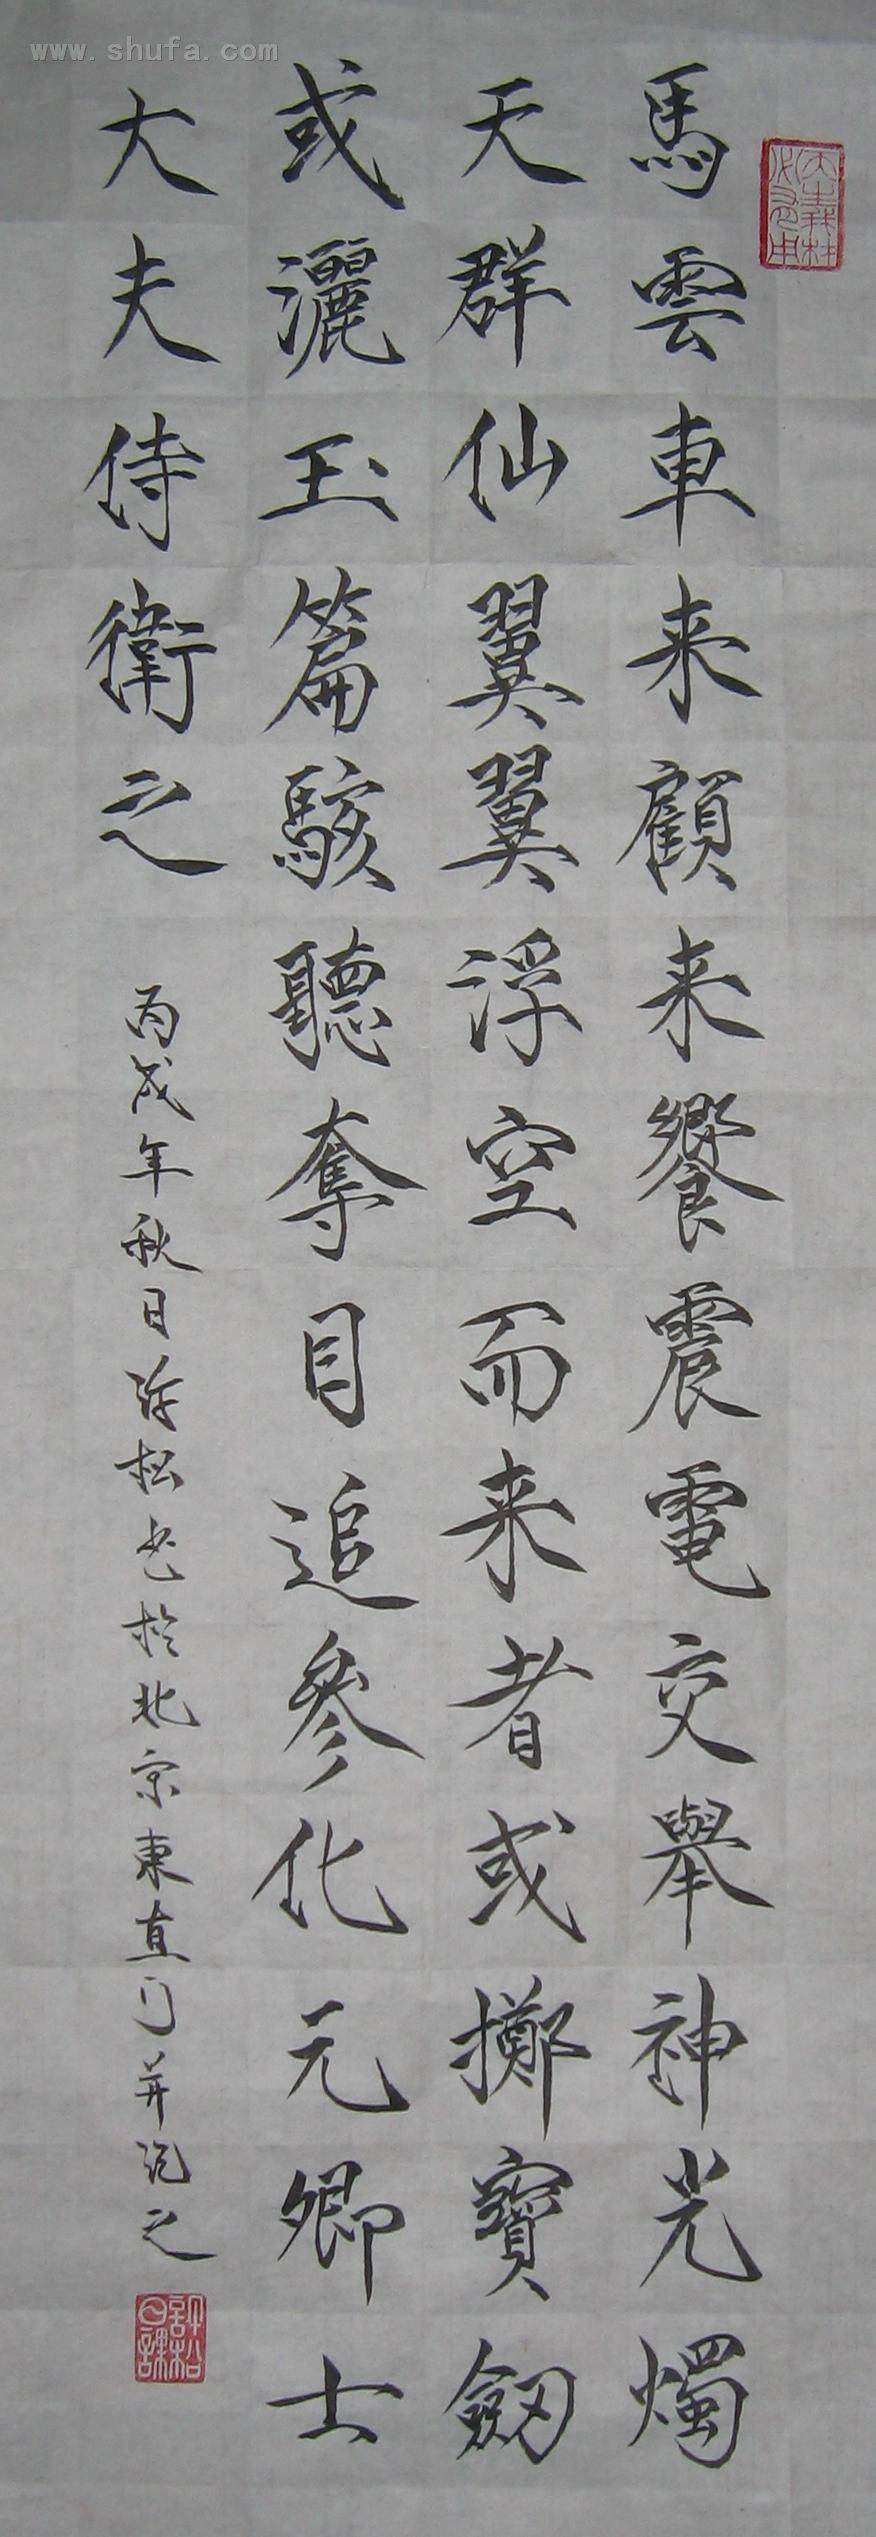 www.shufa.com
天生我材必有用
馬雲車来顧来饗震電交舉神光燭
天群仙翼翼浮空而来者或擲寶劒
或灑玉篇駭聽奪目追參化元卿士
大夫侍衛之
丙戌年秋日許松书於北京東直门并记之
許松日課